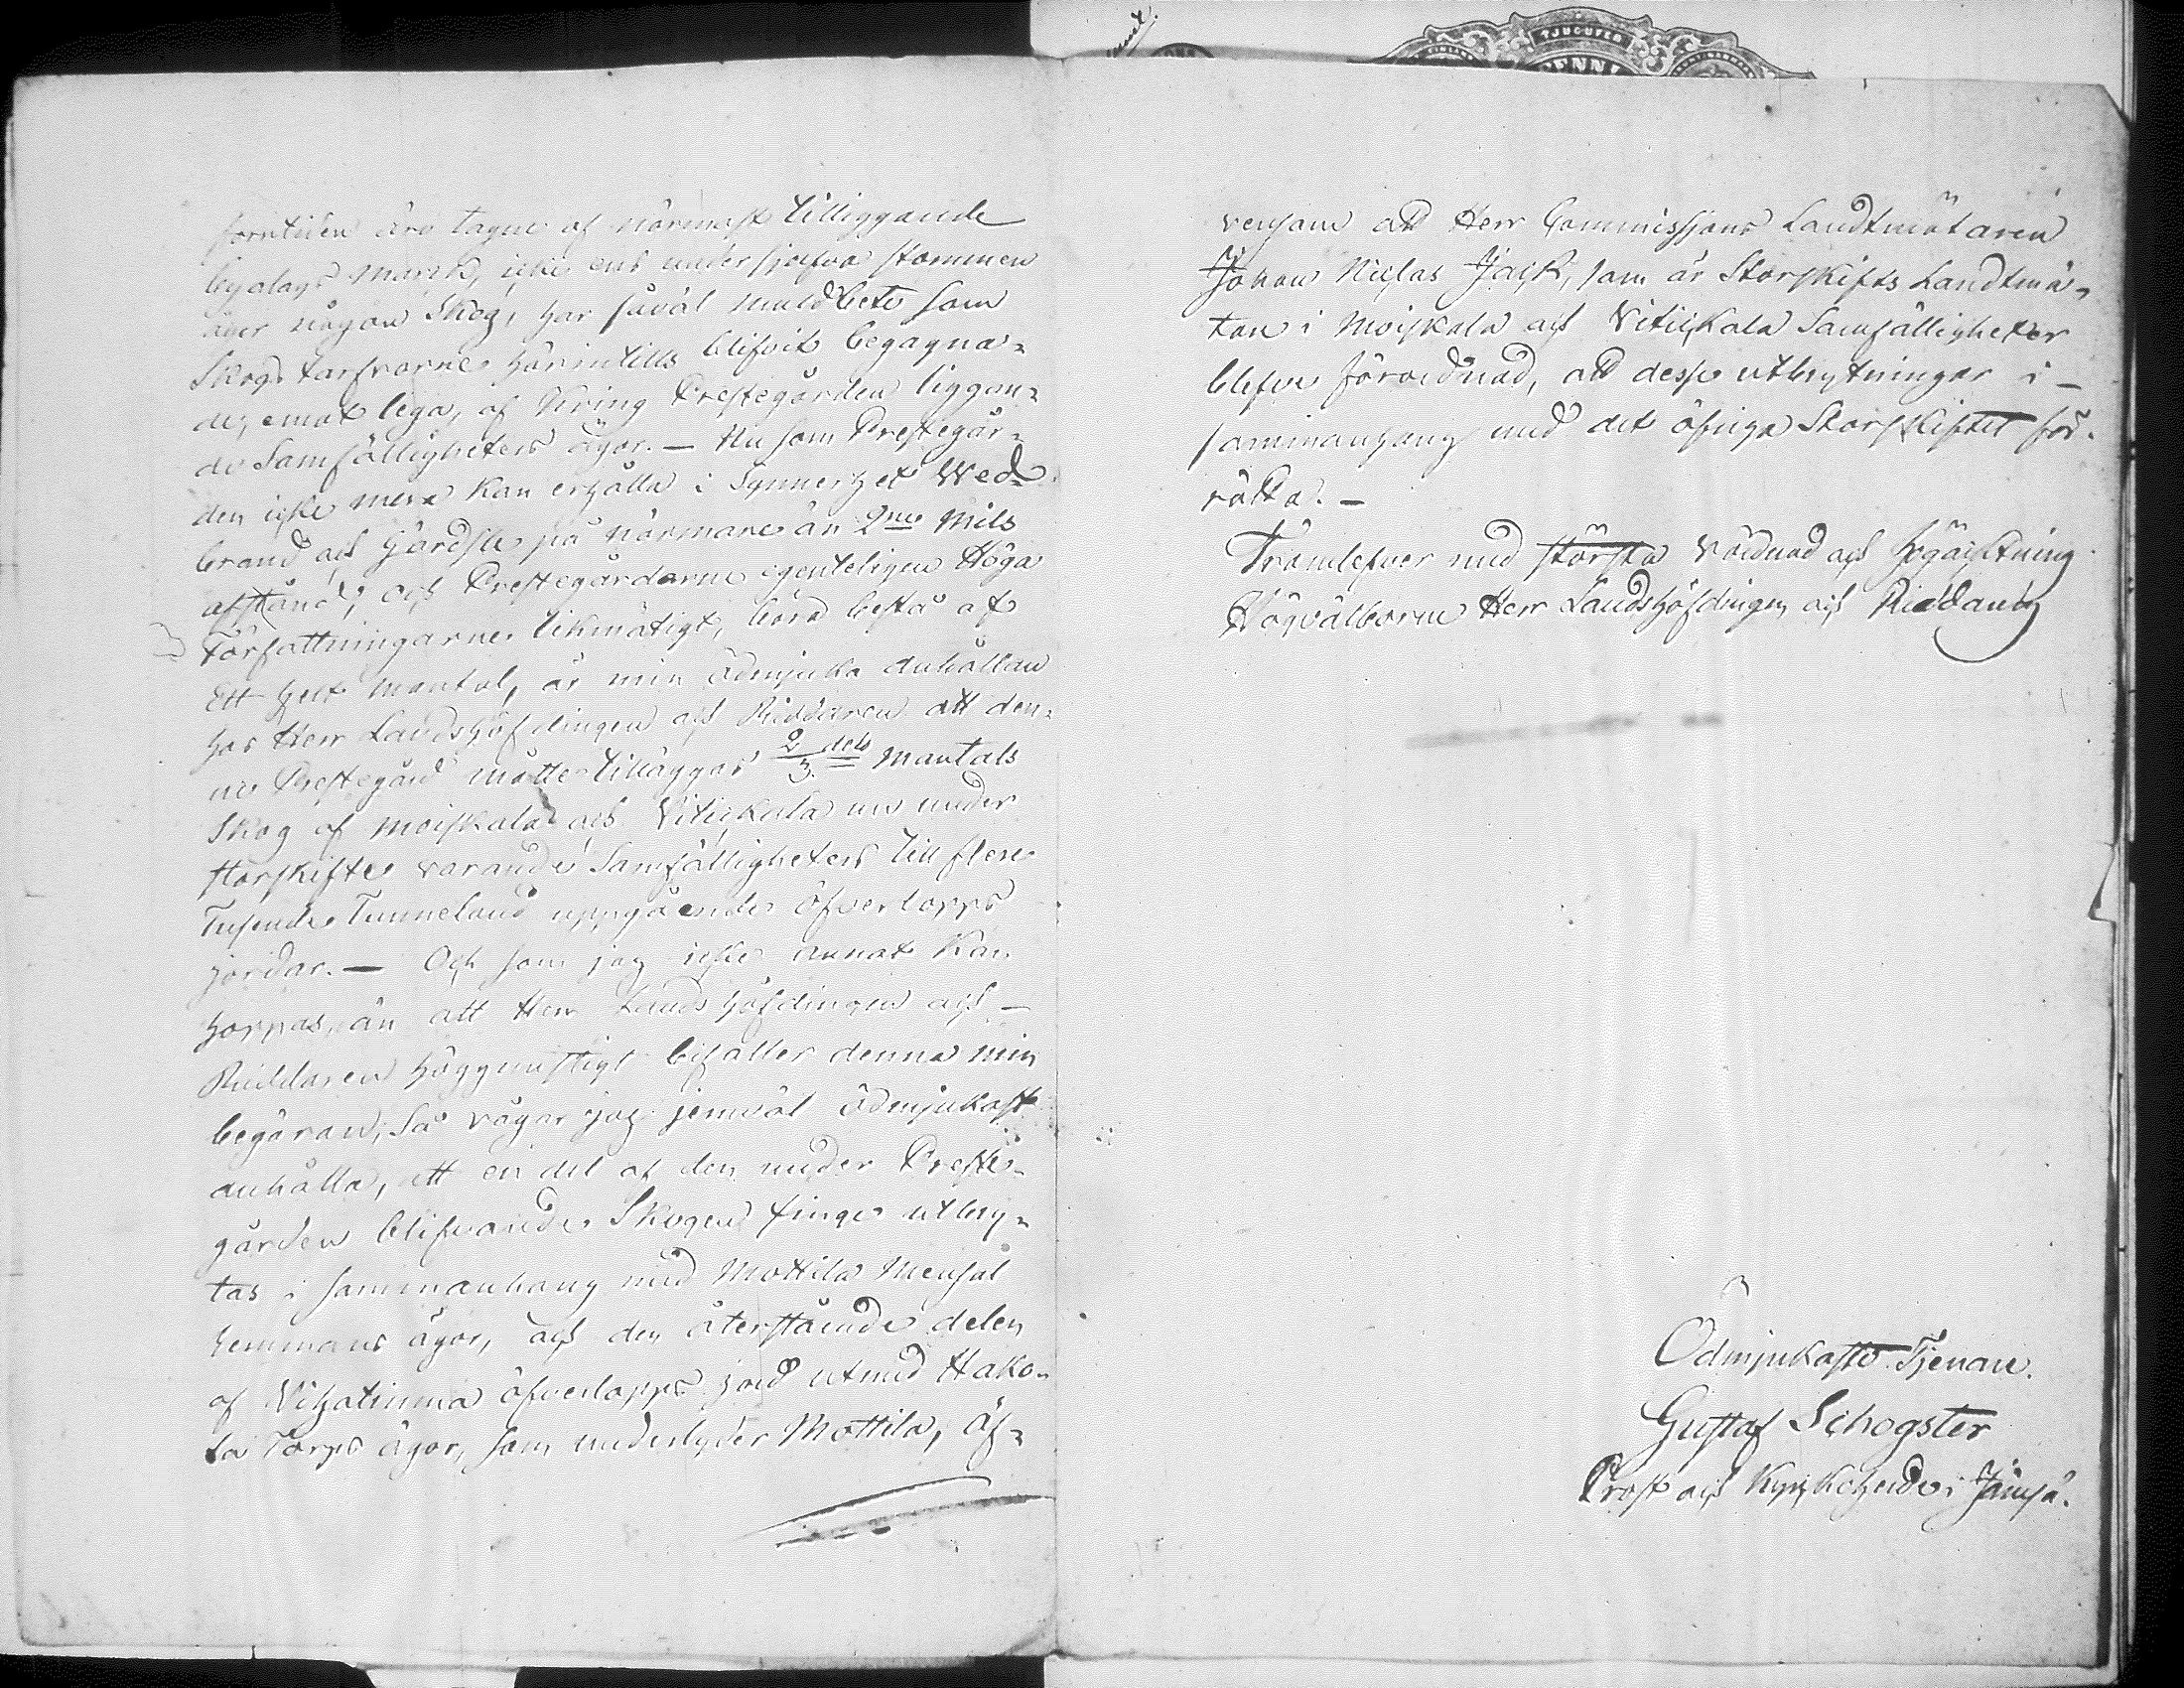 forntiden äro tagne af närmast tilliggande
byalags mark, icke ens under sjelfva stommen
äger någon Skog, har såväl muldbete som
Skogs tarfvorne härintills blifvit begagna-
de, emot lega, af kring Prestegården liggan-
de Samfälligheters ägor. — Nu som Prestegår-
den icke mera kan erhålla i Synnerhet Wed-
brand och Gärdsle på närmare än 2ne Mils
afstånd, och Prestegårdarne egenteligen Höga
Författningarne likmätigt, böra bestå af
Ett helt Mantal, är min ödmjuka anhållan
hos Herr Landshöfdingen och Riddaren att den-
ne Prestegård måtte tilläggas 2/3. dels Mantals
Skog af Moiskala och Vitickala nu under
storskifte varande Samfälligheters till flere
Tusende Tunneland uppgående öfverlopps
jordar. — Och som jag icke annat kan
hoppas, än att Herr Landshöfdingen och —
Riddaren höggunstigt bifaller denna min
begäran; Så vågar jag jemväl ödmjukast
anhålla, att en del af den under Preste-
gården blifvande Skogen finge utbry-
tas i sammanhang med Mottila Mensal
hemmans ägor, och den återstående delen
af Vihatinma öfverlopps jord utmed Hako-
la Torps ägor, som underlyder Mottila, äf-
vensom att Herr Commissions Landtmätaren
Johan Niclas Jack, som är Storskifts Landtmä-
tan i Moiskala och Vitickala Samfälligheter
blefve förordnad, att desse utbrytningar i —
sammanhang med det öfriga Storskiftet för-
rätta. —
Framlefver med största vördnad och högacktning
Högvälborne Herr Landshöfdingen och Riddarens
Ödmjukaste Tjenare.
Gustaf Schogster
Prost och Kyrkoherde i Jämsä.
TJUGUFEM
PENNI